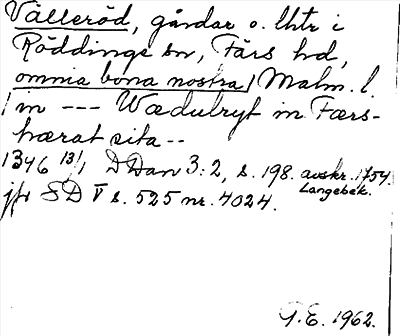 Välleröd, gårdar o. lhtr i
Röddinge sn, Färs hd,
omnia bona nostra / Malm. l.
/ in --- Wædulryt in Færs-
hærat sita --
1346 13/1 DDan 3:2, s. 198. avskr. 1754.
Langebek.
jfr SD V s. 525 nr. 4024.
T.E. 1962.